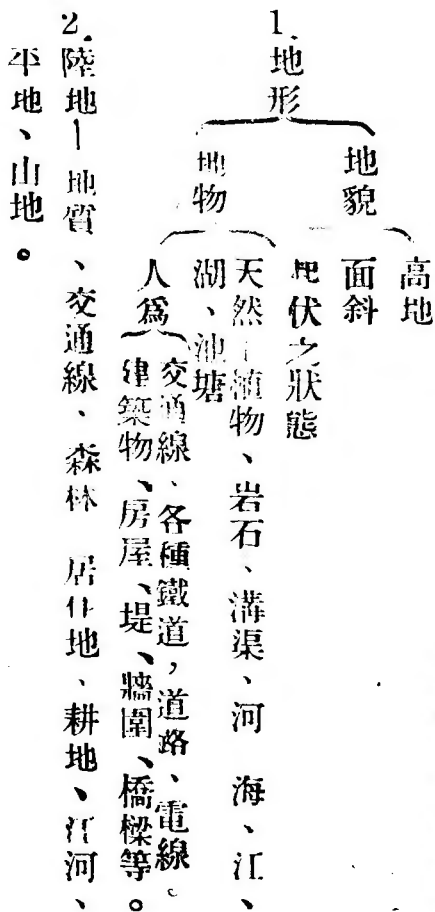 1.地形
地貌
高地
面斜
起伏之狀態
地物
天然—植物、岩石、溝渠、河 海、江、
湖、池塘
人爲
交通線、各種鐵道，道路、電線。
建築物、房屋、堤、牆圍、橋樑等。
2.陸地—地質、交通線、森林 居住地、耕地、江河、
平地、山地。